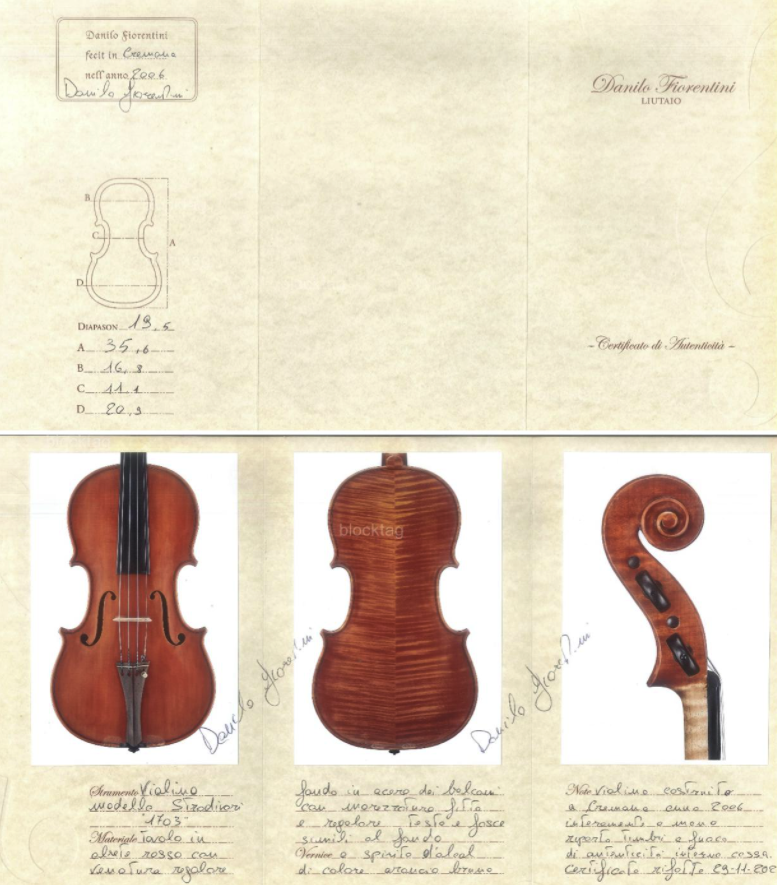 Danilo Fiorentini
fecit in Cremona
nell'anno 2006
Danilo Fiorentini
Danilo Fiorentini
LIUTAIO
B
C
A
D
DIAPASON 19,5
A 35,6
B 16,8
C 11,1
D 20,9
- Certificato di Autenticità -
blocktag
Danilo Fiorentini
Danilo Fiorentini
Strumento Violino
modello Stradivari
"1703"
Materiale Tavola in
abete rosso con
venatura regolare
fondo in acero dei balcani
con marezzatura fitta
e regolare Testa e fasce
simili al fondo
Vernice a spirito d'alcol
di colore arancio bruno
Note Violino costruito
a Cremona anno 2006
interamente a mano
riporta timbri a fuoco
di autenticità interno cassa.
Certificato rifatto 29-11-202